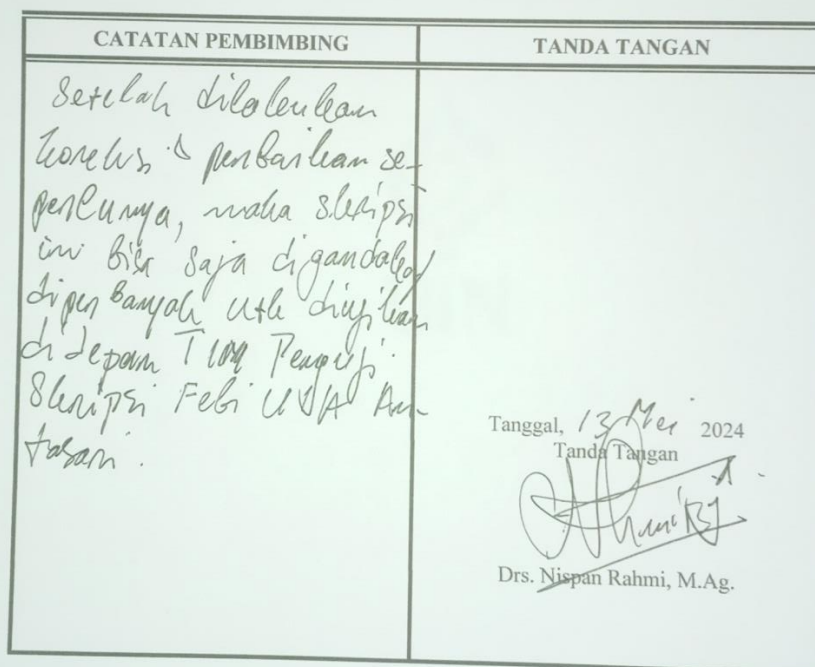 CATATAN PEMBIMBING
TANDA TANGAN
Setelah dilakukan
koreksi & perbaikan se-
perlunya, maka skripsi
ini bisa saja digandakan/
diperbanyak utk diujikan
di depan Tim Penguji
Skripsi Febi UIN An-
tasari.
Tanggal, 13 Mei 2024
Tanda Tangan
Drs. Nispan Rahmi, M.Ag.